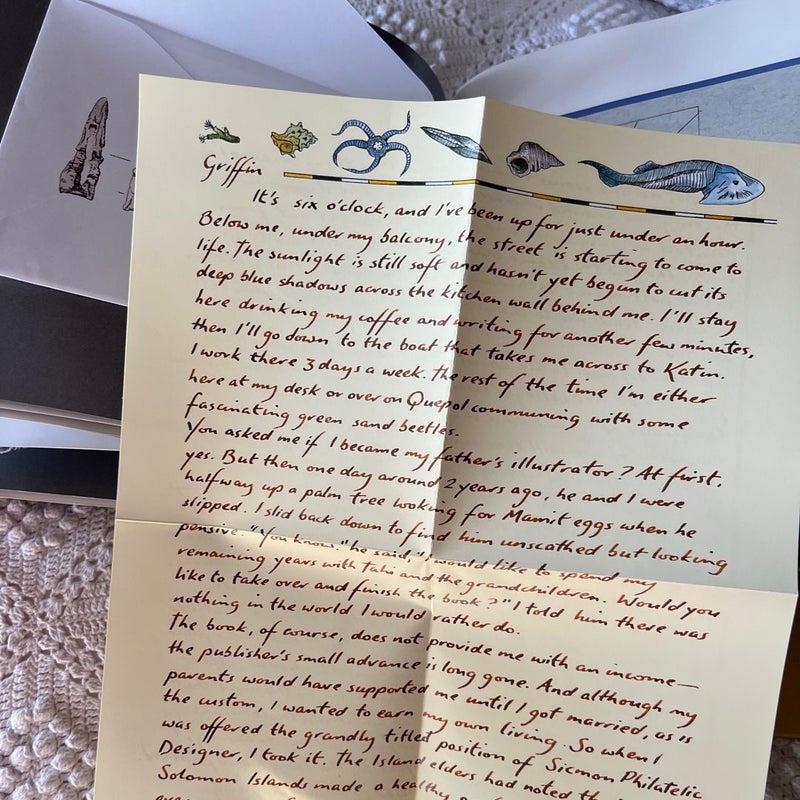 Griffin
It's six o'clock, and I've been up for just under an hour.
Below me, under my balcony, the street is starting to come to
life. The sunlight is still soft and hasn't yet begun to cut its
deep blue shadows across the kitchen wall behind me. I'll stay
here drinking my coffee and writing for another few minutes,
then I'll go down to the boat that takes me across to Katin.
I work there 3 days a week. The rest of the time I'm either
here at my desk or over on Quepol communing with some
fascinating green sand beetles.
You asked me if I became my father's illustrator? At first,
yes. But then one day around 2 years ago, he and I were
halfway up a palm tree looking for Mamit eggs when he
slipped. I slid back down to find him unscathed but looking
pensive. "You know," he said, "I would like to spend my
remaining years with Tahi and the grandchildren. Would you
like to take over and finish the book?" I told him there was
nothing in the world I would rather do.
The book, of course, does not provide me with an income—
the publisher's small advance is long gone. And although my
parents would have supported me until I got married, as is
the custom, I wanted to earn my own living. So when I
was offered the grandly titled position of Sicmon Philatelic
Designer, I took it. The Island elders had noted
Solomon Islands made a healthy